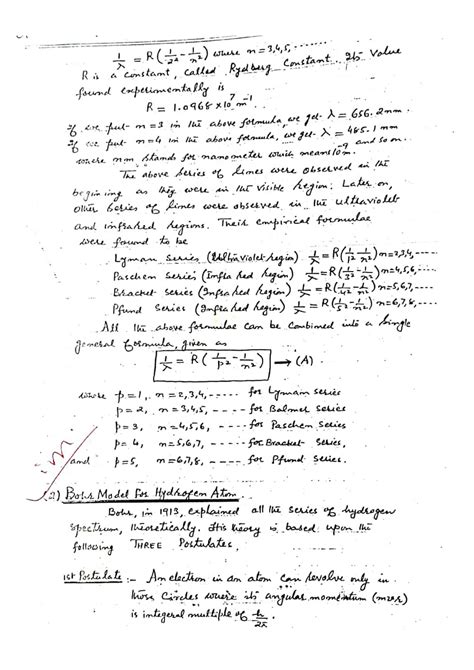 1/λ = R(1/2² - 1/n²) where n=3,4,5, ------
R is a constant, called Rydberg Constant. Its value
found experimentally is
R = 1.0968 x 10⁷ m⁻¹.
If we put n=3 in the above formula, we get λ = 656.2nm.
If we put n=4 in the above formula, we get λ = 485.1 nm
where nm stands for nanometer which means 10⁻⁹m. and so on.
The above series of lines were observed in the
begining as they were in the visible region. Later on,
other series of lines were observed in the ultraviolet
and infrared regions. Their empirical formulae
were found to be
Lyman Series (Ultraviolet region) 1/λ = R(1/1² - 1/n²) n=2,3,4, -----
Paschem Series (Infrared region) 1/λ = R(1/3² - 1/n²) n=4,5,6, -----
Bracket Series (Infrared region) 1/λ = R(1/4² - 1/n²) n=5,6,7, -----
Pfund Series (Infrared region) 1/λ = R(1/5² - 1/n²) n=6,7,8, -----
All the above formulae can be combined into a single
general formula, given as
1/λ = R(1/p² - 1/n²) → (A)
where p=1, n=2,3,4, ----- for Lyman series
p=2, n=3,4,5, ----- for Balmer Series
p=3, n=4,5,6, ----- for Paschem Series
p=4, n=5,6,7, ----- for Bracket Series,
and p=5, n=6,7,8, ----- for Pfund Series.
(2) Bohr Model For Hydrogen Atom.
Bohr, in 1913, explained all the series of hydrogen
spectrum, theoretically. His theory is based upon the
following THREE Postulates
1st Postulate :- An electron in an atom can revolve only in
those circles where its angular momentum (mvr)
is integral multiple of h/2π.